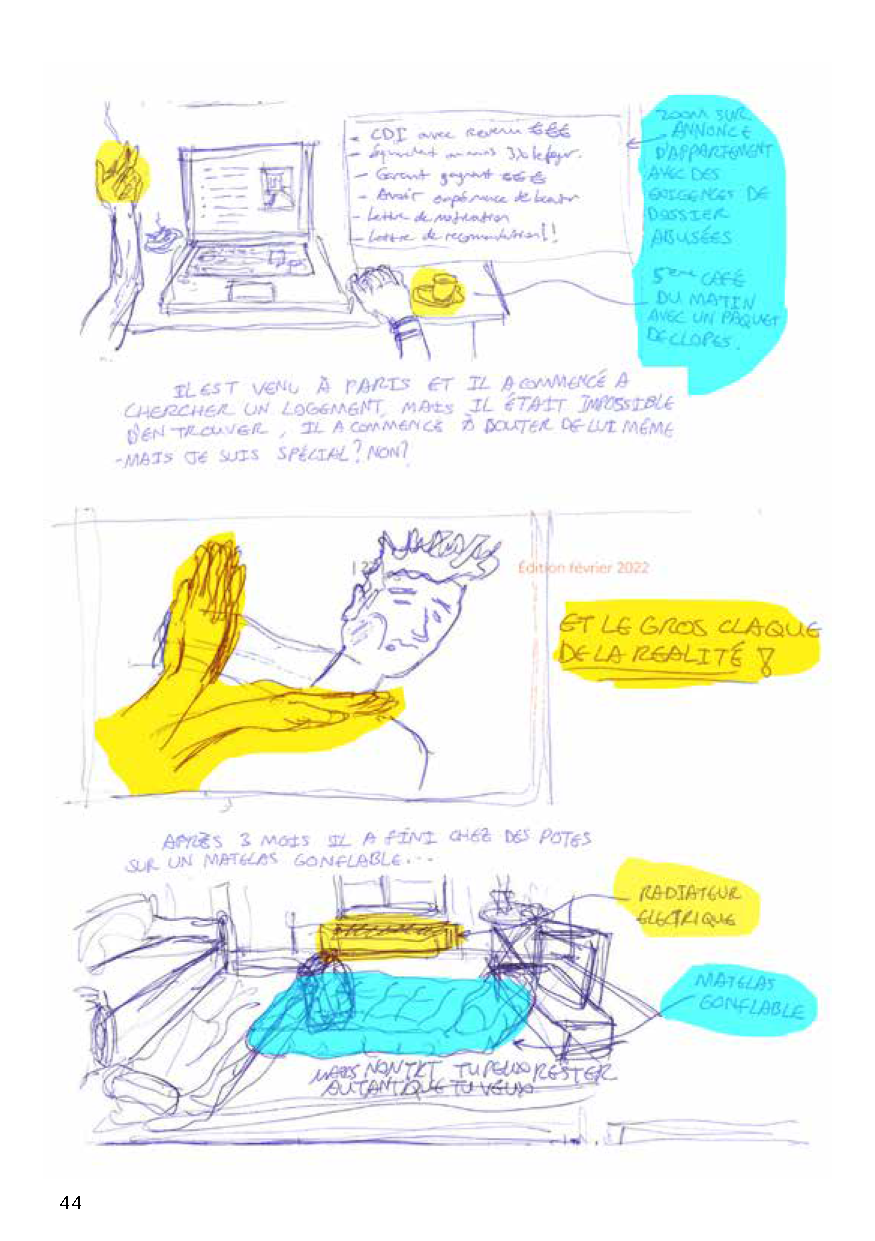 - CDI avec revenu €€€
- Équivalent au mois 3x le loyer.
- Garant gagnant €€€
- Avoir expérience de
- Lettre de motivation
- Lettre de recomandation!!
ZOOM SUR
ANNONCE
D'APPARTEMENT
AVEC DES
EXIGENCES DE
DOSSIER
ABUSÉES
5ème CAFÉ
DU MATIN
AVEC UN PAQUET
DE CLOPES.
IL EST VENU À PARIS ET IL A COMMENCÉ A
CHERCHER UN LOGEMENT, MAIS IL ÉTAIT IMPOSSIBLE
D'EN TROUVER, IL A COMMENCÉ À DOUTER DE LUI MÊME
-MAIS JE SUIS SPÉCIAL? NON?
Édition février 2022
ET LE GROS CLAQUE
DE LA REALITÉ!
APRÈS 3 MOIS IL A FINI CHEZ DES POTES
SUR UN MATELAS GONFLABLE...
RADIATEUR
ELECTRIQUE
MATELAS
GONFLABLE
MAIS NON TKT TU PEUX RESTER
AUTANT QUE TU VEUX
44